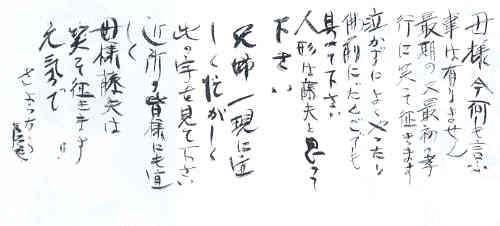 母様 今何も言ふ
事は有りません
最期の又最初の孝
行に笑って征きます
泣かずによくやったと
佛前にだんごでも
具へて下さい
人形は藤夫と思って
下さい
兄姉一現に宜
しく忙がしく
此の字を見て下さい
近所の皆様にも宜
しく
母様藤夫は
笑って征きます
元気で !!
さようなら